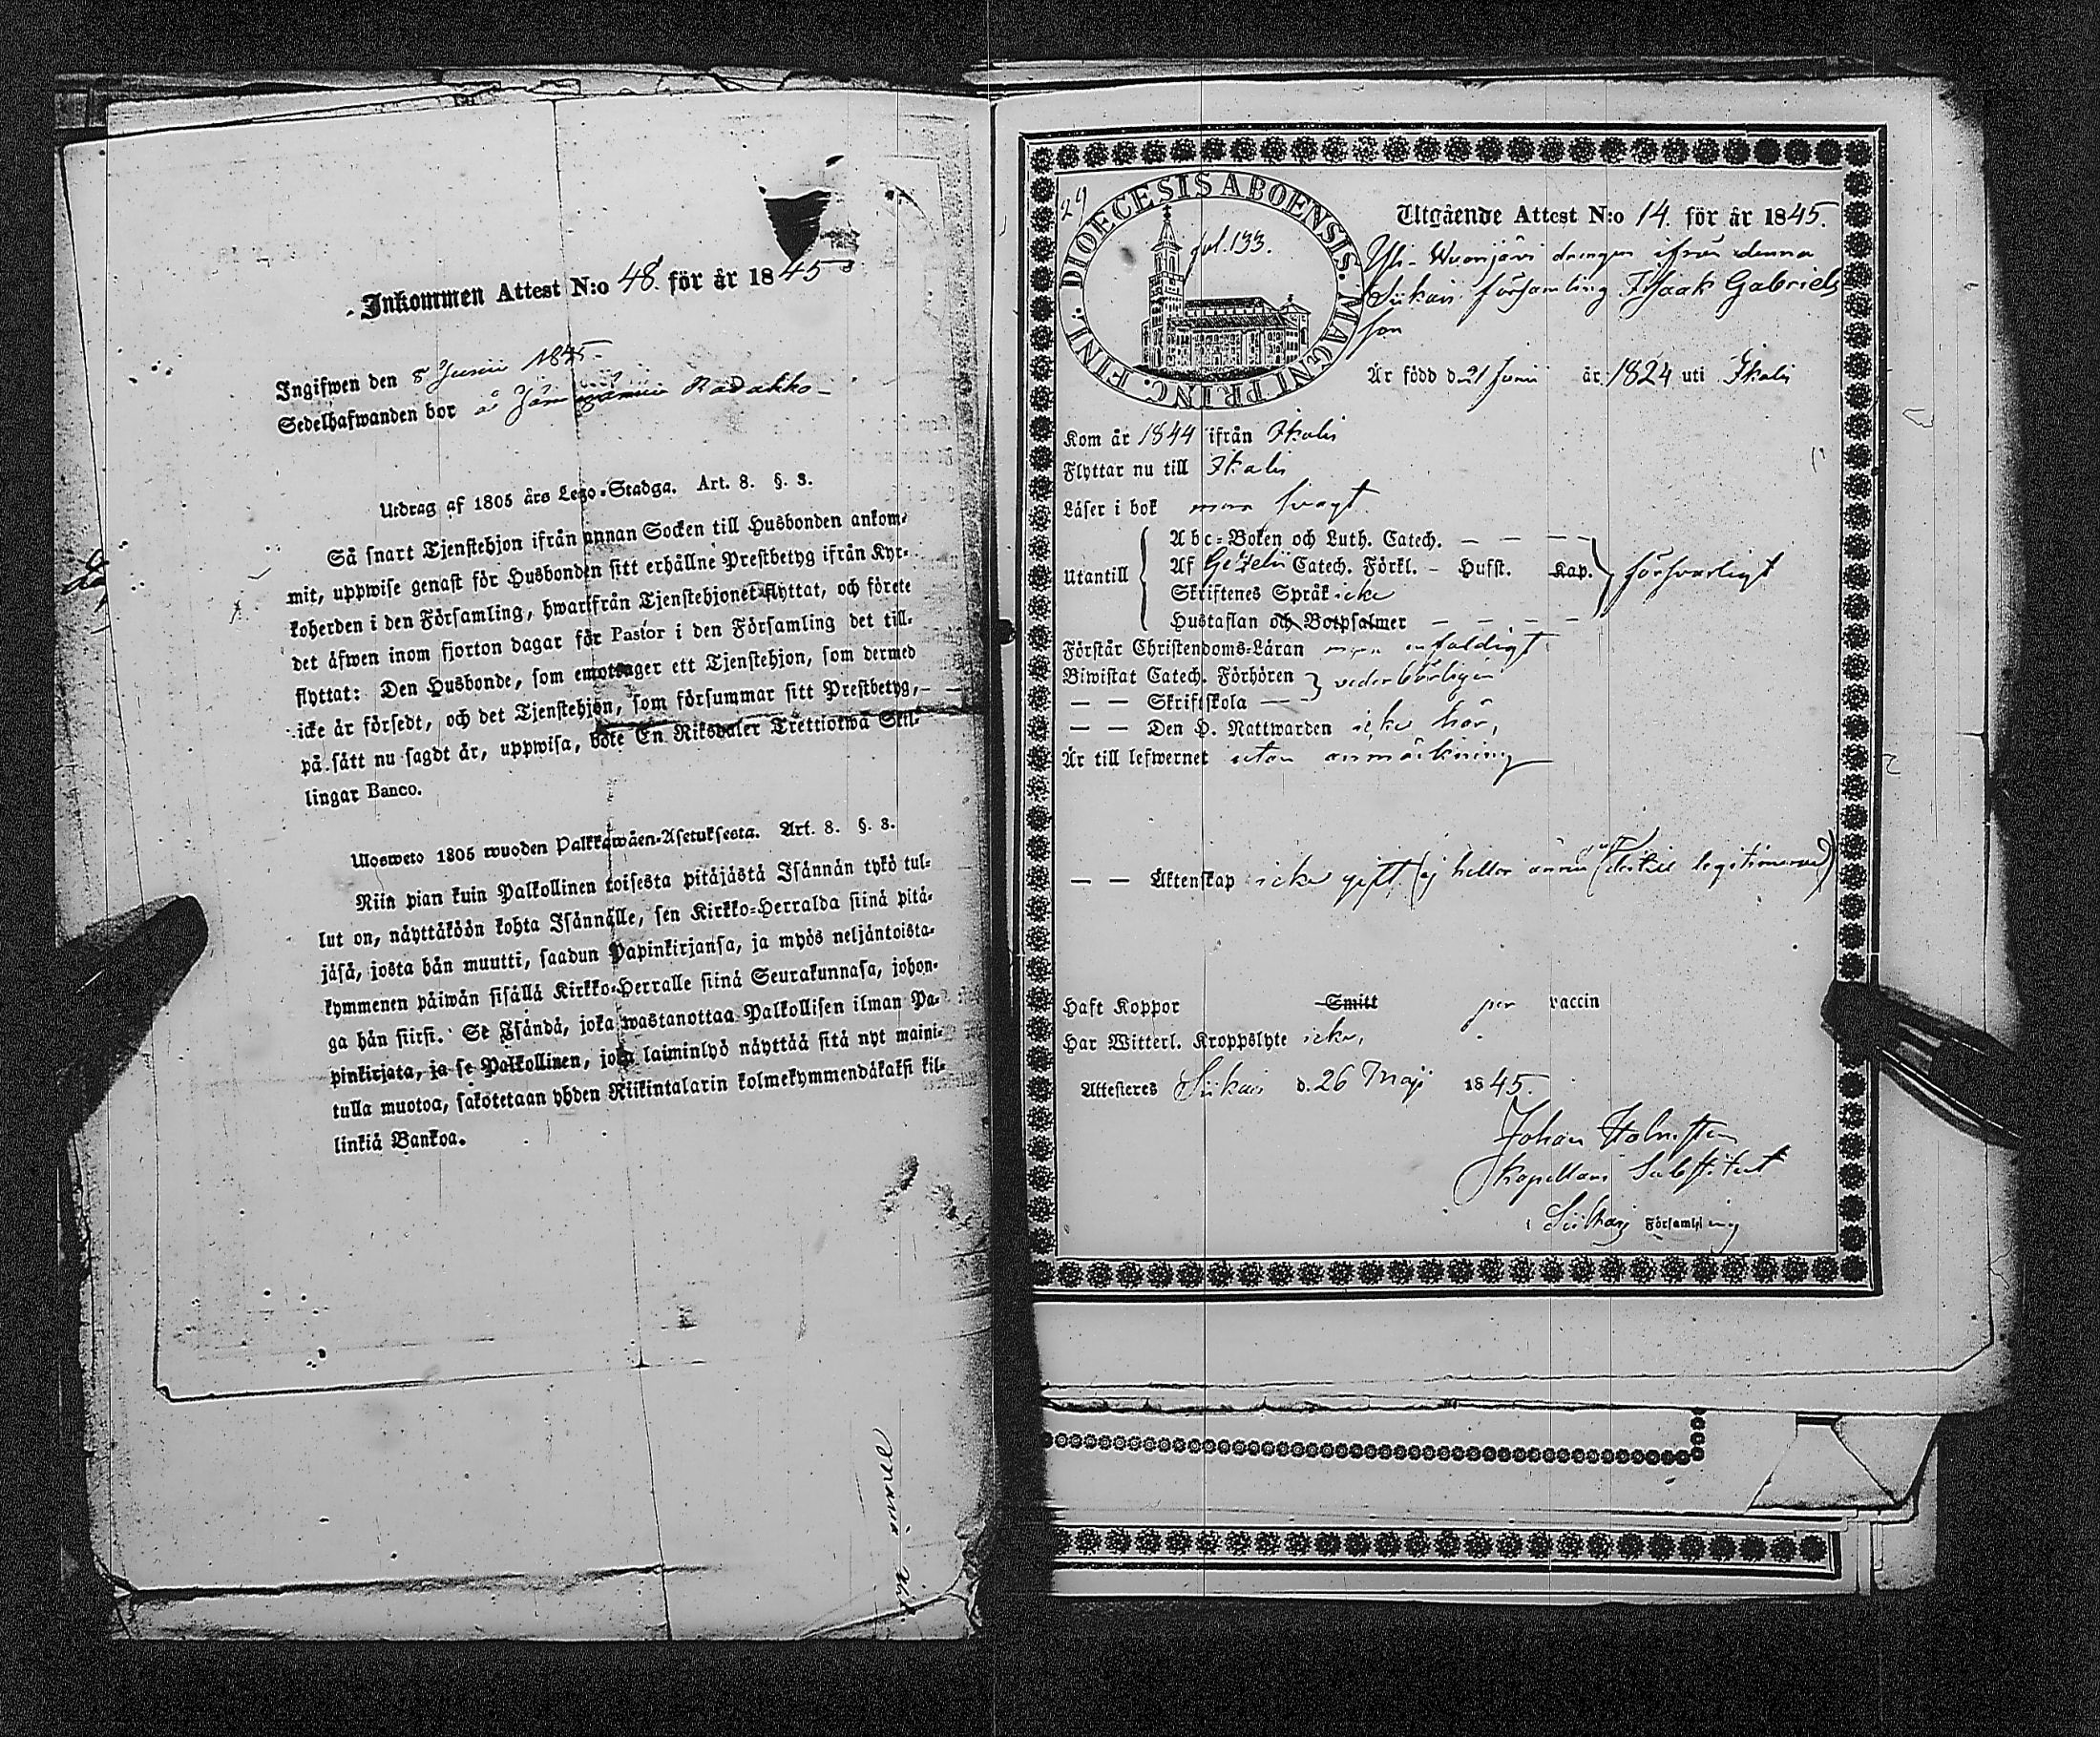 Inkommen Attest N:o 48 för år 1845
Ingifwen den 8 Junii 1845.
Sedelhafwanden bor å Radakko
Utdrag af 1805 års Lego-Stadga. Art. 8. §. 3.
Så snart Tjenstehjon ifrån annan Socken till Husbonden ankom-
mit, uppwise genast för Husbonden sitt erhållne Prestbetyg ifrån Kyr-
koherden i den Församling, hwarifrån Tjenstehjonet flyttat, och förete
det äfwen inom fjorton dagar för Pastor i den Församling det till-
flyttat: Den Husbonde, som emottager ett Tjenstehjon, som dermed
icke är försedt, och det Tjenstehjon, som försummar sitt Prestbetyg,
på sätt nu sagdt är, uppwisa, böte En Riksdaler Trettiotwå Skil-
lingar Banco.
Ulosweto 1805 wuoden Palkkawäen-Asetuksesta. Art. 8. §. 3.
Niin pian kuin Palkollinen toisesta pitäjästä Isännän tykö tul-
lut on, näyttäköön kohta Isännälle, sen Kirkko-Herralda siinä pitä-
jäsä, josta hän muutti, saadun Papinkirjansa, ja myös neljäntoista-
kymmenen päiwän sisällä Kirkko-Herralle siinä Seurakunnasa, johon-
ga hän siirsi. Se Isändä, joka wastanottaa Palkollisen ilman Pa-
pinkirjata, ja se Palkollinen, joka laiminlyö näyttää sitä nyt maini-
tulla muotoa, sakotetaan yhden Riikintalarin kolmekymmendäkaksi kil-
linkiä Bankoa.
DIOECESIS ABOENSIS. MAGNI PRINC. FINL.
29
fol. 133.
Utgående Attest N:o 14. för år 1845.
Yli-Wuorijärvi drengen ifrån denna
Siikais församling Isaak Gabriels
son
Är född d. 21 Junii år 1824 uti Ikalis
Kom år 1844 ifrån Ikalis
Flyttar nu till Ikalis
Läser i bok men svagt
Utantill
Abc-Boken och Luth. Catech. — — — —
Af Gezelii Catech. Förkl. — Husst. Kap. försvarligt
Skriftenes Språk icke
Hustaflan och Botpsalmer — — — —
Förstår Christendoms-Läran men enfaldigt
Biwistat Catech. Förhören vederbörligen
— — Skriftskola —
— — Den H. Nattwarden icke här,
Är till lefwernet utan anmärkning
— — Äktenskap icke gift (ej heller ännu dertill legitimerad)
Haft Koppor Smitt per vaccin
Har Witterl. Kroppslyte icke,
Attesteres Siikais d. 26 Maji 1845.
Johan Holmsten
Kapellans Substitut
i Siikais Församling